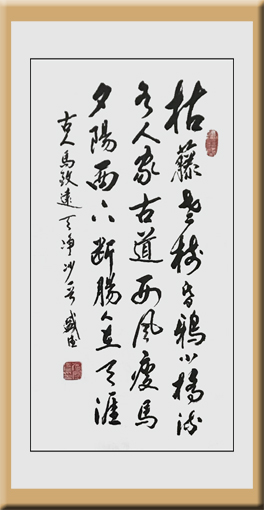 枯藤老树昏鴉小橋流
水人家古道西风瘦馬
夕陽西下断腸人在天涯
古人馬致遠天净沙